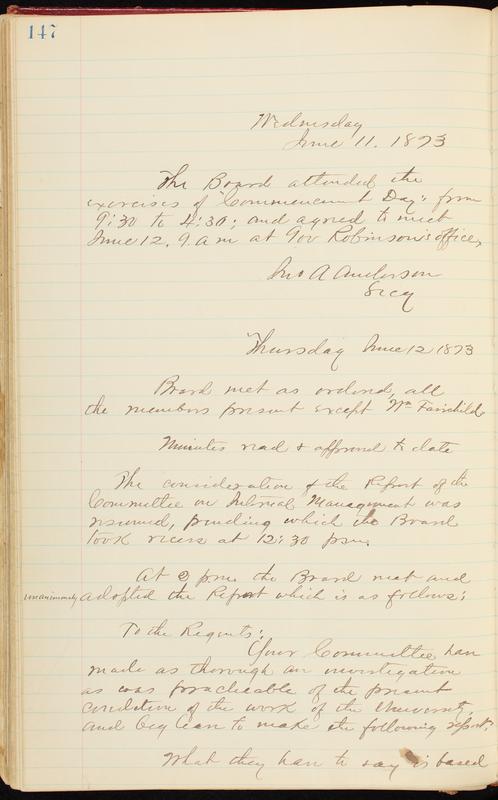 147
Wednesday
June 11. 1873
The Board attended the
exercises of "Commencement Day", from
9:30 to 4:30; and agreed to meet
June 12, 9 a m at Gov Robinson's office,
Jno A Anderson
Secy
Thursday June 12 1873
Board met as ordered, all
the members present except Wm Fairchild
Minutes read & approved to date
The consideration of the Report of the
Committee on Internal Management was
resumed, pending which the Board
took recess at 12:30 pm.
At 2 pm the Board met and
unanimously adopted the Report which is as follows:
To the Regents:
Your Committee have
made as thorough an investigation
as was practicable of the present
condition of the work of the University,
and beg leave to make the following report.
What they have to say is based